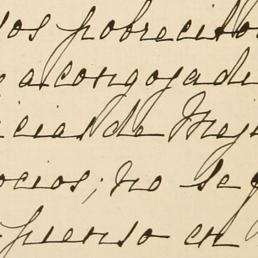 los pobrecitos
acongojad
icias de Meji
ocios; no se
pienso en